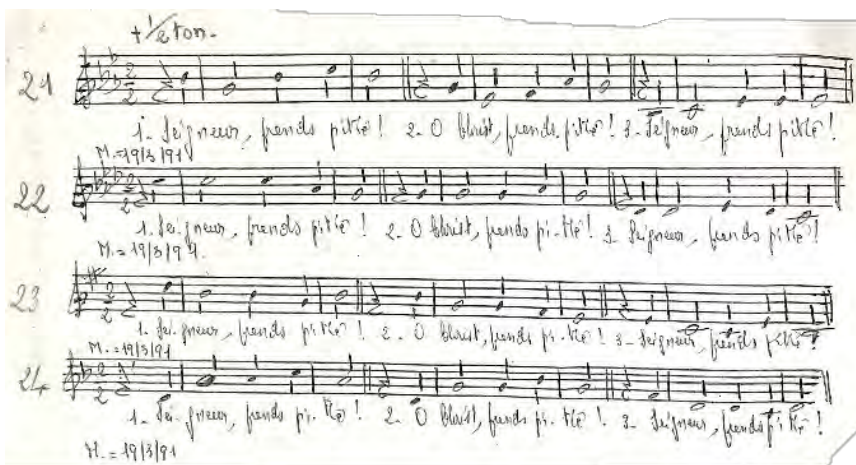 + 1/2 ton.
21 2/2
1- Seigneur, prends pitié! 2- O Christ, prends pitié! 3- Seigneur, prends pitié!
M. = 19/3/91
22 2/2
1. Seigneur, prends pitié! 2- O Christ, prends pi-tié! 3. Seigneur, prends pitié!
M. = 19/3/91.
23 2/2
1. Sei-gneur, prends pi-tié! 2- O Christ, prends pi-tié! 3- Seigneur, prends pitié!
M. = 19/3/91
24 2/2
1- Sei-gneur, prends pi-tié! 2. O Christ, prends pi-tié! 3- Seigneur, prends pi-tié!
M. = 19/3/91